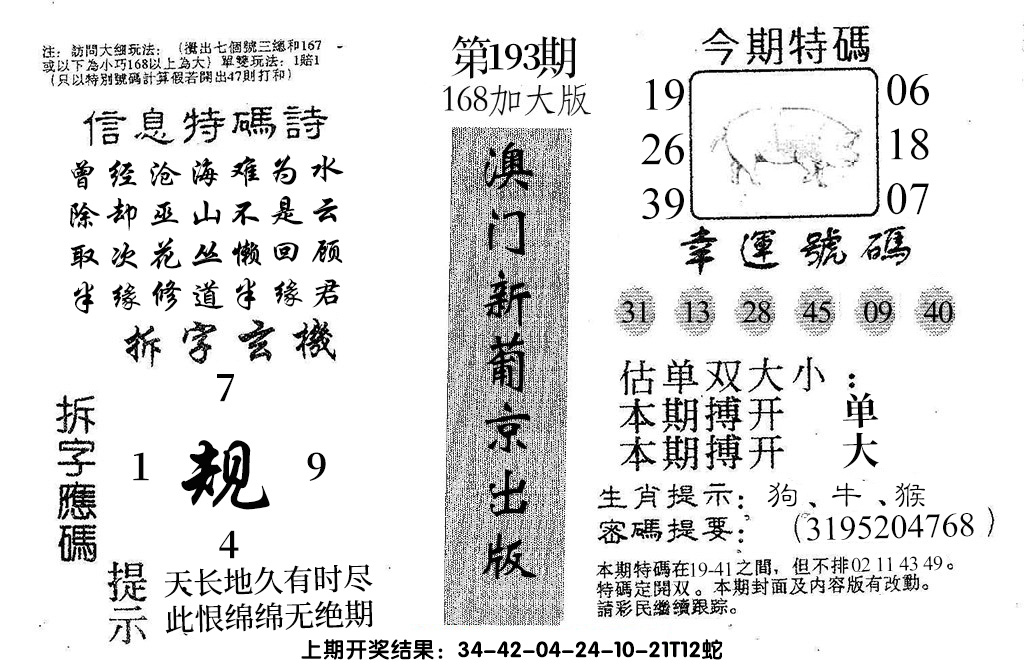 注：訪問大细玩法：（攪出七個號三總和167
或以下為小巧168以上為大）單雙玩法：1賠1
（只以特別號碼計算假若開出47則打和）
信息特碼詩
曾经沧海难为水
除却巫山不是云
取次花丛懒回顾
半缘修道半缘君
拆字玄機
7
1 规 9
4
拆字應碼
提示
天长地久有时尽
此恨绵绵无绝期
第193期
168加大版
澳门新葡京出版
今期特碼
19 06
26 18
39 07
幸運號碼
31 13 28 45 09 40
估单双大小：
本期搏开 单
本期搏开 大
生肖提示：狗、牛、猴
密碼提要：（3195204768）
本期特碼在19-41之間，但不排02 11 43 49。
特碼定開双。本期封面及内容版有改動。
請彩民繼續跟踪。
上期开奖结果：34-42-04-24-10-21T12蛇